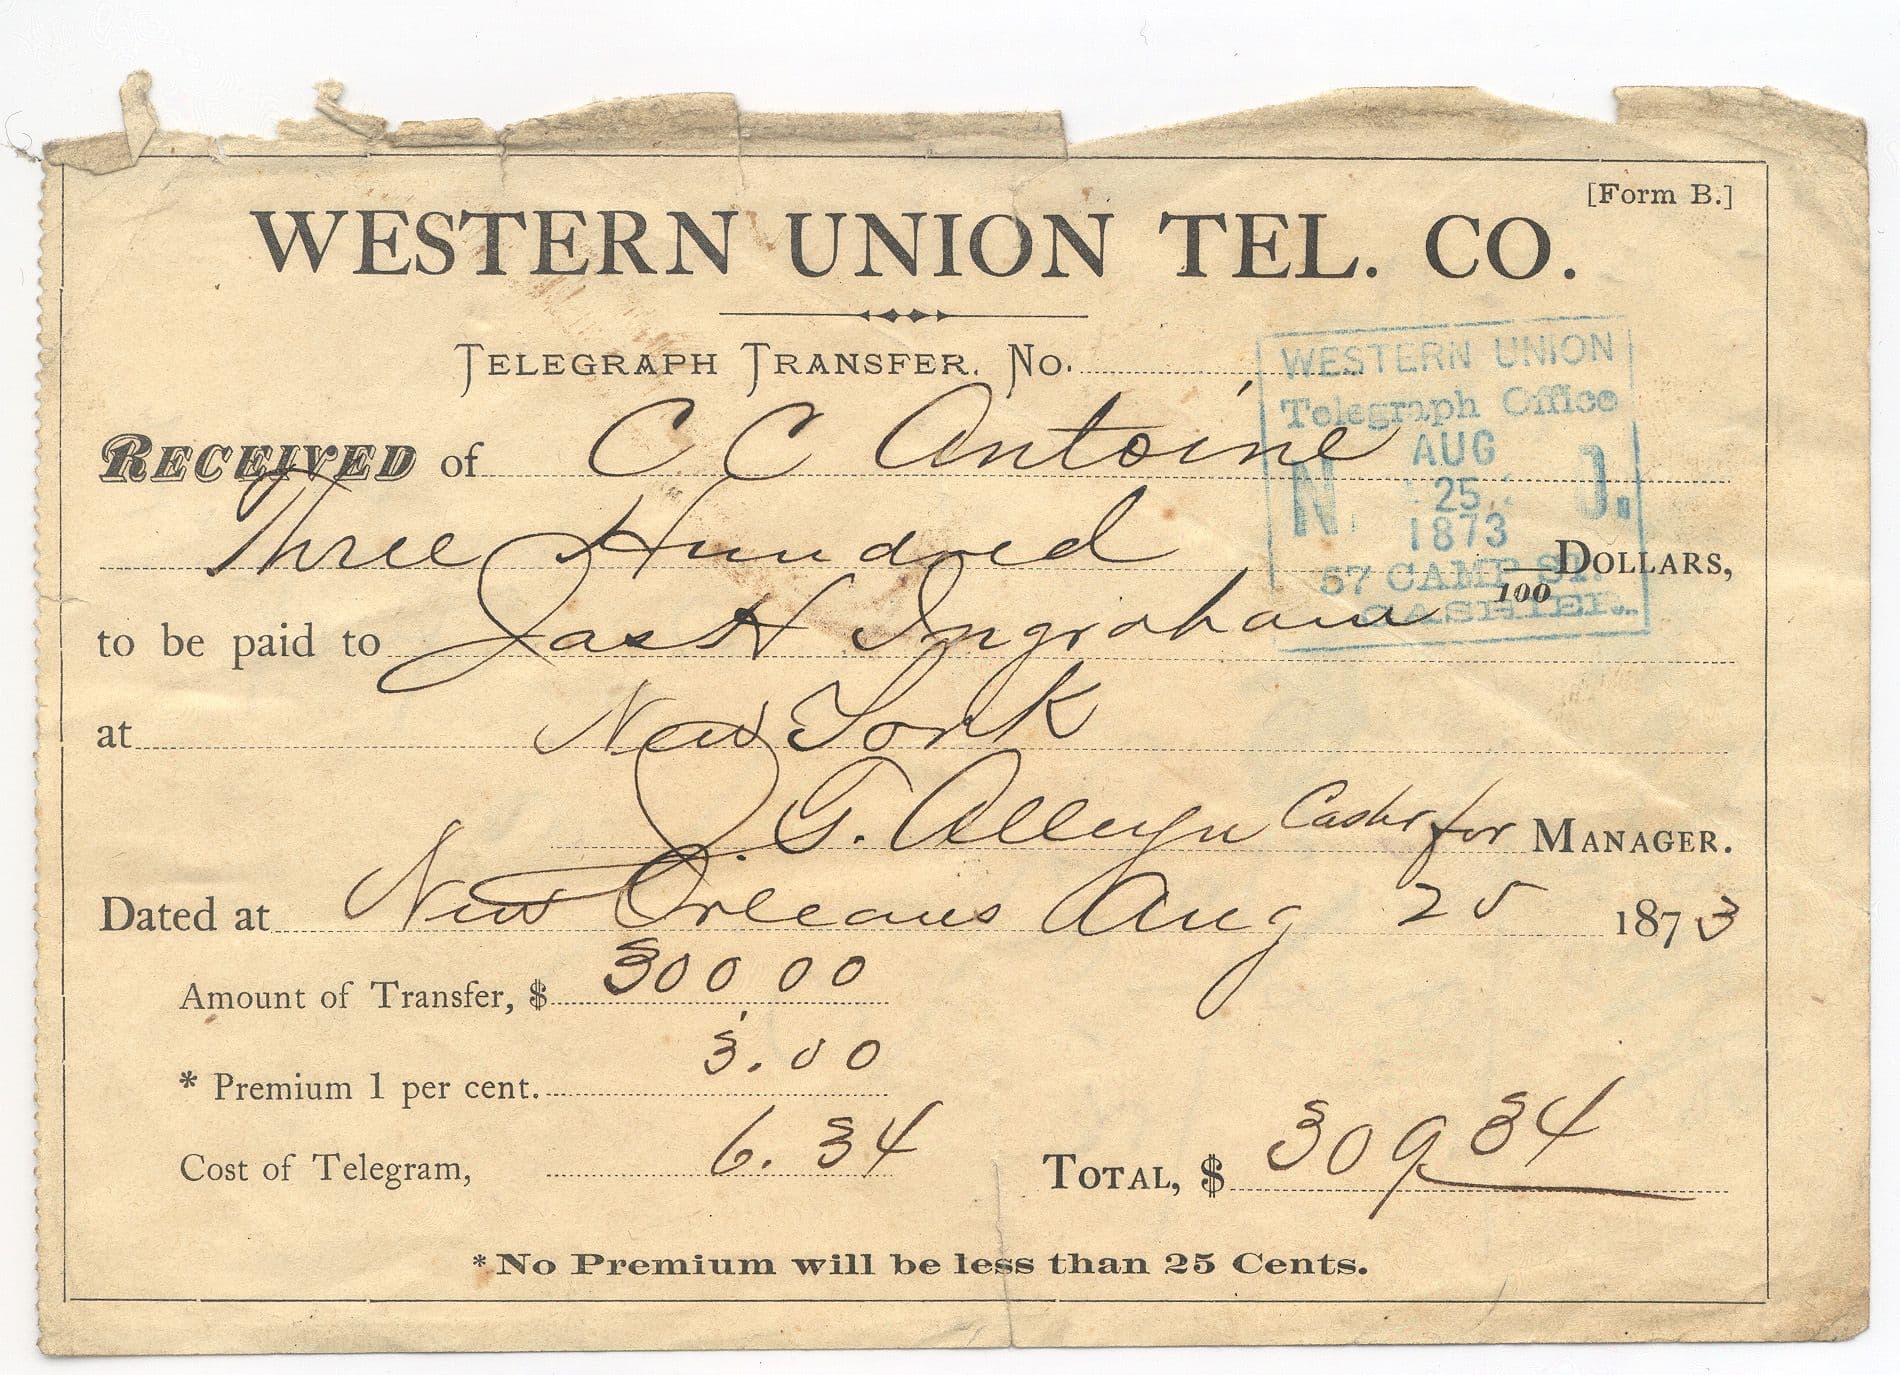 [Form B.]
WESTERN UNION TEL. CO.
TELEGRAPH TRANSFER. No.
RECEIVED of C C Antoine
Three Hundred /100 DOLLARS,
to be paid to Jas H Ingraham
at New York
J. G. Alleyn Cashr for MANAGER.
Dated at New Orleans Aug 25 1873
Amount of Transfer, $ 300 00
* Premium 1 per cent. 3.00
Cost of Telegram, 6.34 TOTAL, $ 309 34
*No Premium will be less than 25 Cents.
WESTERN UNION
Telegraph Office
AUG
N. 25 
1873
57 CAMP ST.
CASHIER.